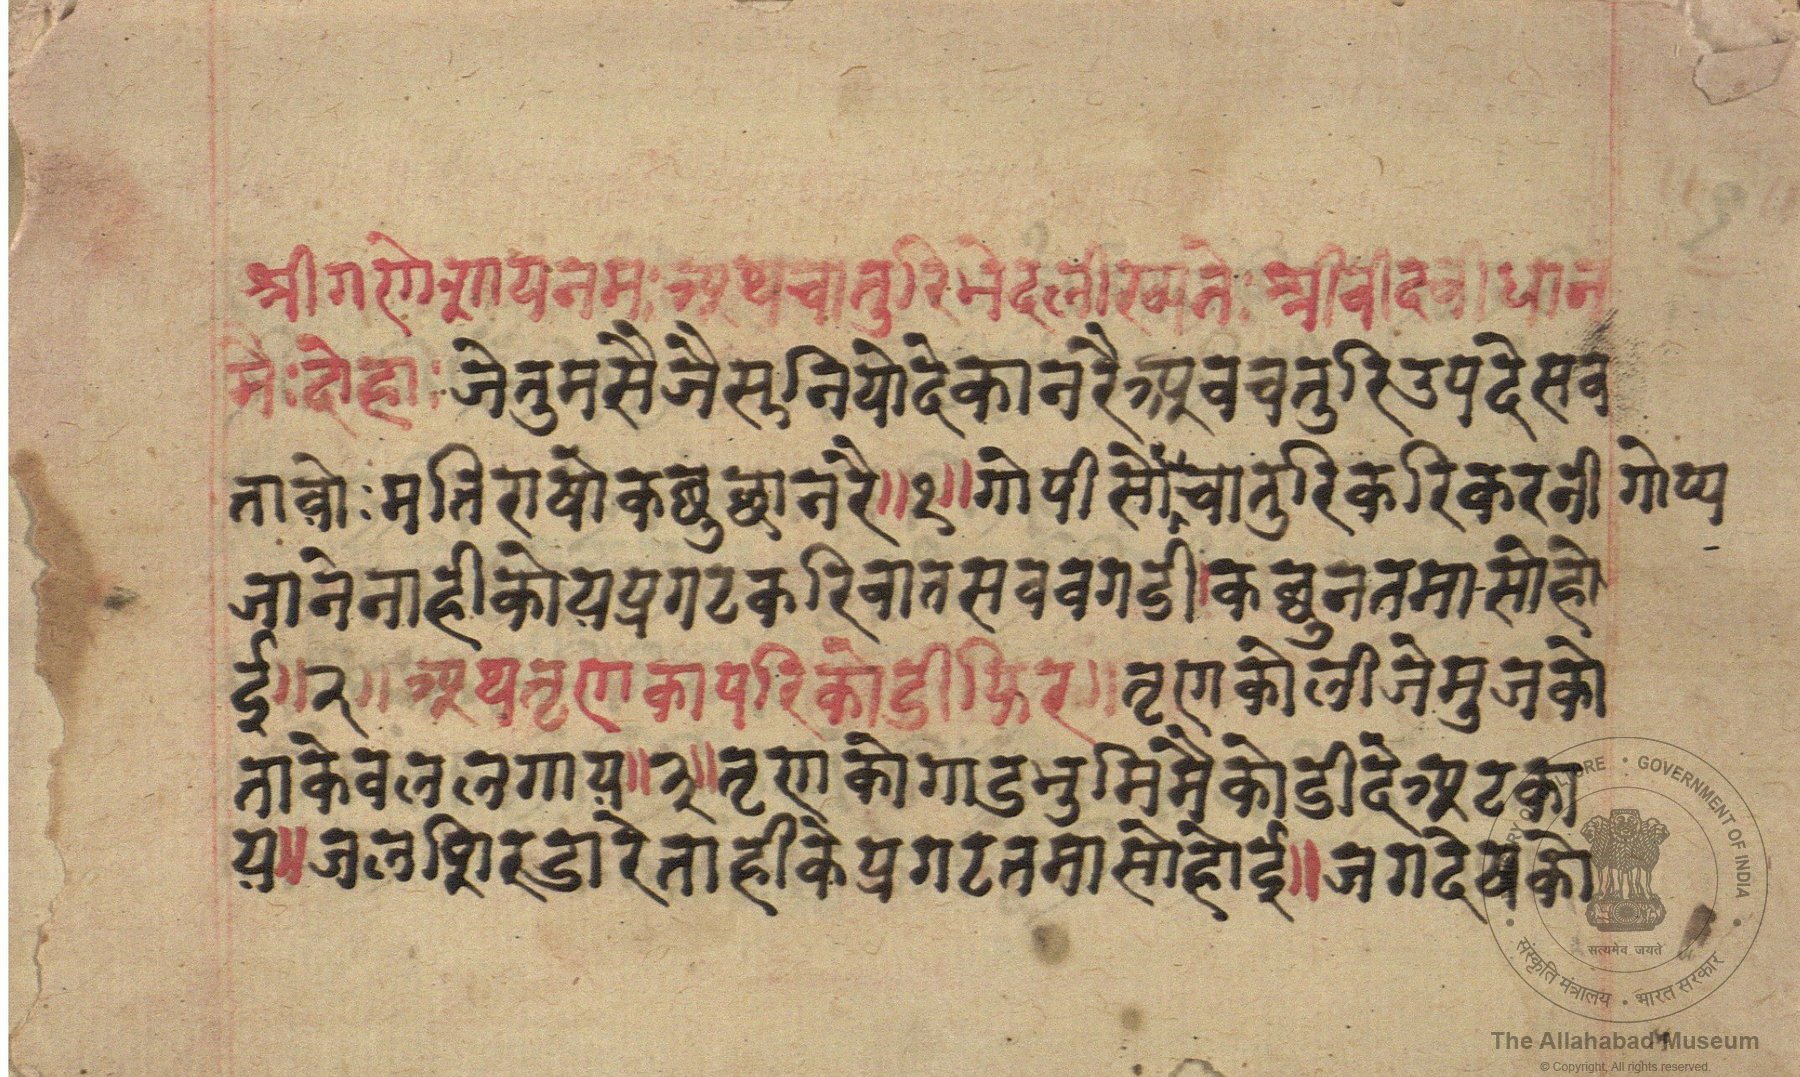 श्रीगणेशायनमः अथचातुरिभेदलीख्यते: श्रीवीदवीधान
मे: दोहा: जेतुमसैजैसुनियोदेकानरैअवचतुरिउपदेसव
तावो: मतिराषोकछुछानरै॥१॥गोपीसोंचातुरिकरिकरनी गोप्य
जानेनाहीकोयप्रगटकरिवातसववगडी।कछुनतमासोहो
ई॥२॥अथतृणकापरिकोडीफिर॥तृणकोलीजेमुजको
ताकेवललगाय॥२॥तृणकोगाडभुमिमैकोडीदेअटका
य॥जलशिरडारेताहीकेप्रगटतमासोहोई॥जगदेखको
GOVERNMENT OF INDIA
सत्यमेव जयते
संस्कृति मंत्रालय • भारत सरकार
The Allahabad Museum
© Copyright, All rights reserved.